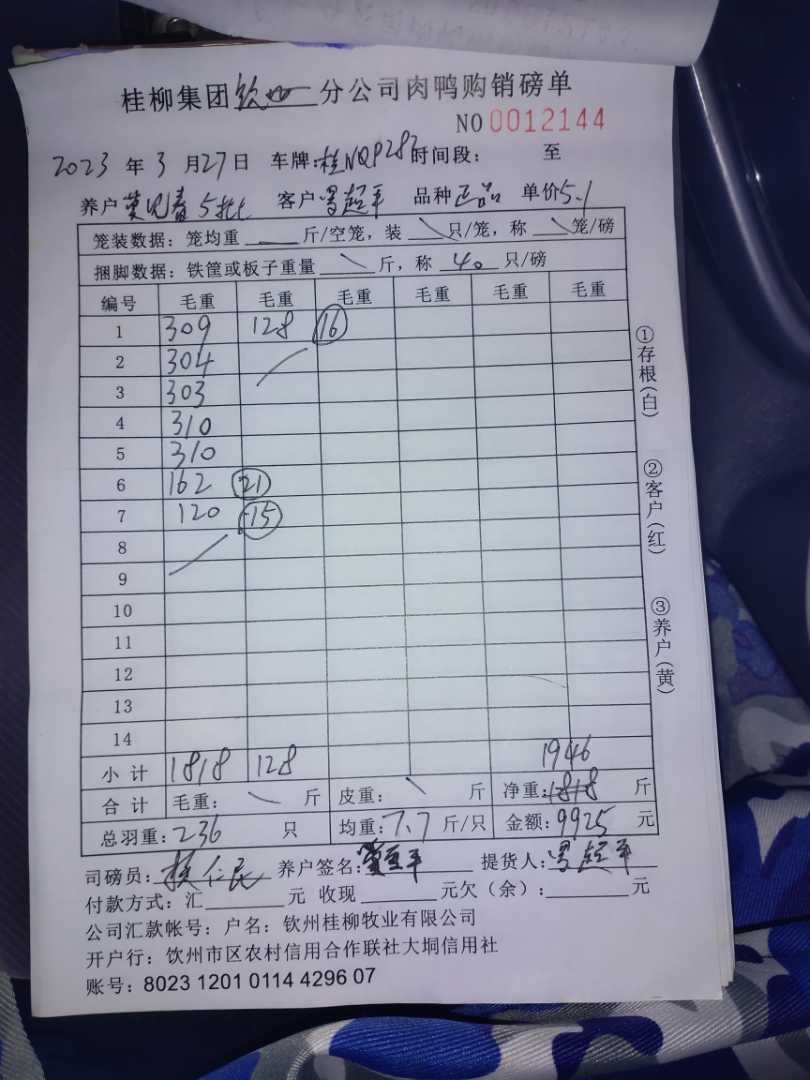 桂柳集团钦州分公司肉鸭购销磅单
NO 0012144
2023 年 3 月 27 日 车牌:桂NQP282 时间段: 至
养户 5批 客户 超平 品种 正品 单价 5.1
笼装数据: 笼均重 斤/空笼, 装 \ 只/笼, 称 \ 笼/磅
捆脚数据: 铁筐或板子重量 \ 斤, 称 40 只/磅
编号 毛重 毛重 毛重 毛重 毛重 毛重
1 309 128 16
2 304
3 303
4 310
5 310
6 162 21
7 120 15
8
9
10
11
12
13
14
小计 1818 128 1946
合计 毛重: \ 斤 皮重: \ 斤 净重: 1818 斤
总羽重: 236 只 均重: 7.7 斤/只 金额: 9925 元
司磅员: 仁民 养户签名: 平 提货人: 超平
付款方式: 汇 元 收现 元欠(余): 元
公司汇款帐号: 户名: 钦州桂柳牧业有限公司
开户行: 饮州市区农村信用合作联社大垌信用社
账号: 8023 1201 0114 4296 07
①存根(白)
②客户(红)
③养户(黄)